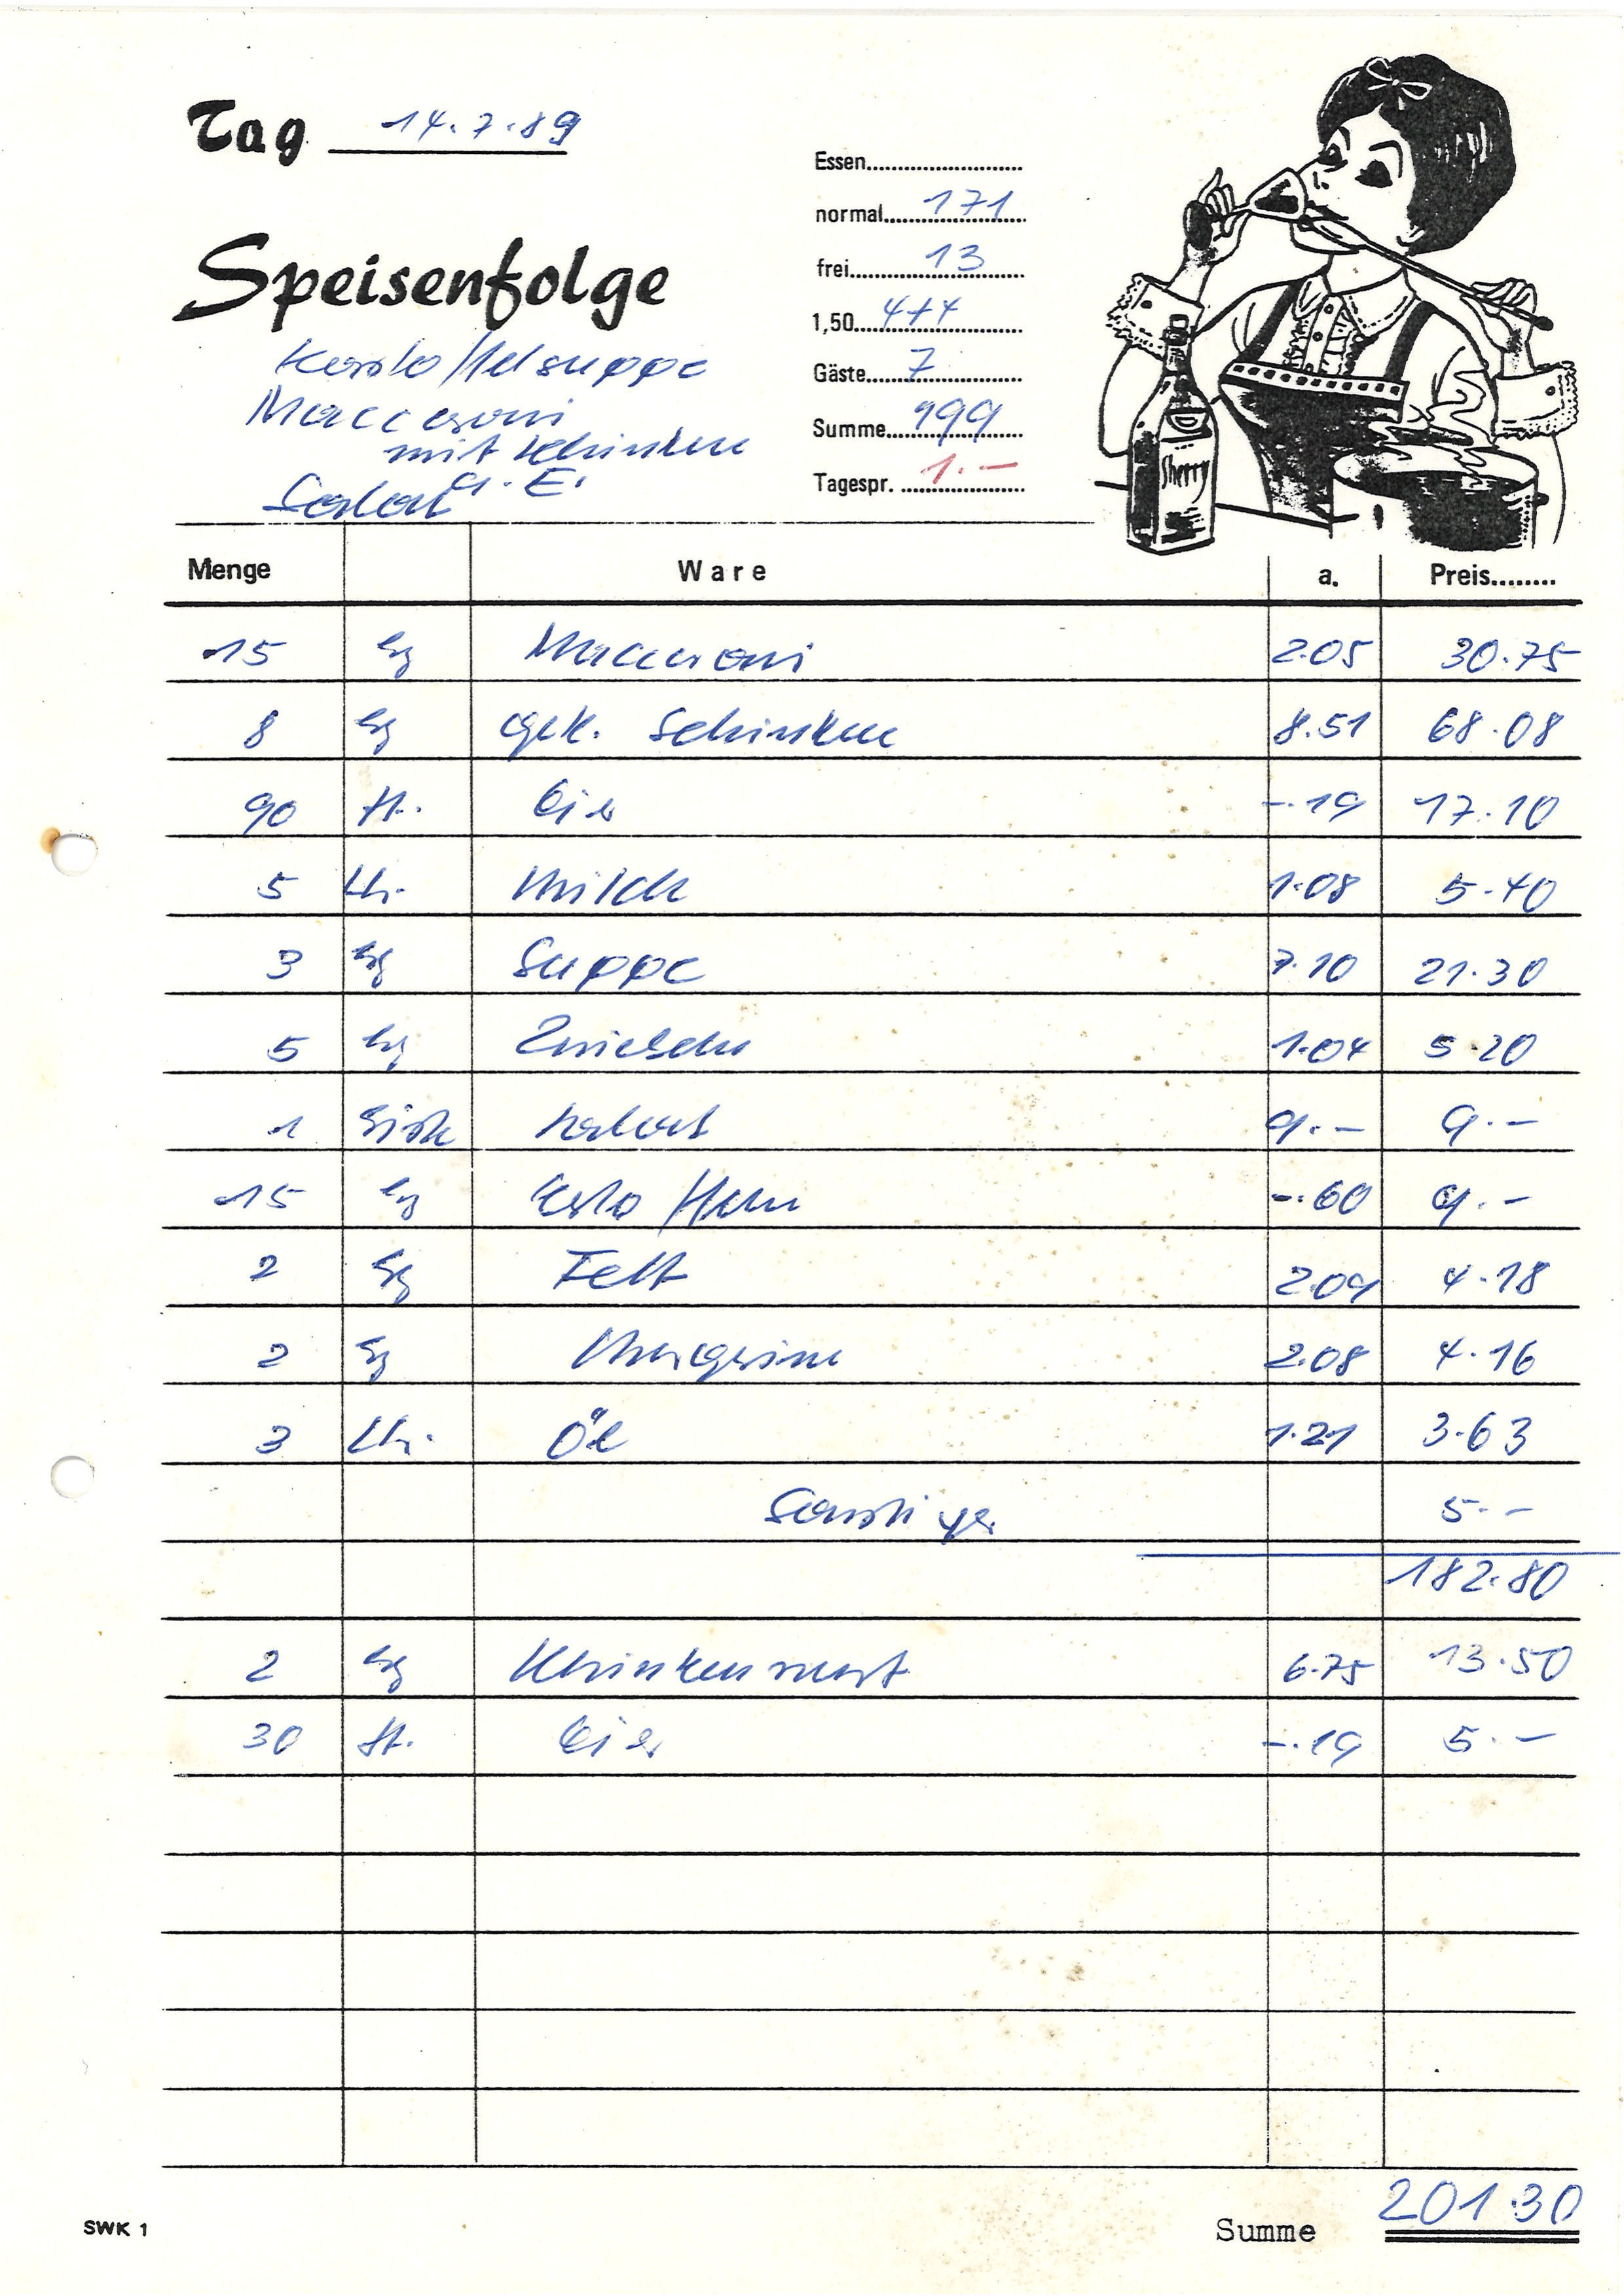 Tag 14.7.89
Speisenfolge
Kartoffelsuppe
Maccaroni
mit Schinken
u. Ei
Salat
Essen
normal 171
frei 13
1,50 4+4
Gäste 7
Summe 199
Tagespr. 1.-
Sherry
Menge Ware a. Preis
15 kg Maccaroni 2.05 30.75
8 kg gek. Schinken 8.51 68.08
90 St. Eier -.19 17.10
5 Ltr. Milch 1.08 5.40
3 kg Suppe 7.10 21.30
5 kg Zwiebeln 1.04 5.20
1 Kiste Salat 9.- 9.-
15 kg Kartoffeln -.60 9.-
2 kg Fett 2.09 4.18
2 kg Margarine 2.08 4.16
3 Ltr. Öl 1.21 3.63
Sonstiges 5.-
182.80
2 kg Schinkenwurst 6.75 13.50
30 St. Eier -.19 5.-
SWK 1 Summe 201.30